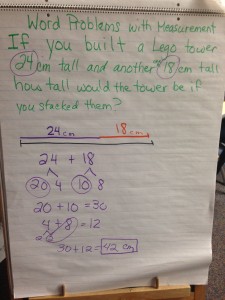 Word Problems with Measurement
If you built a Lego tower
24 cm tall and another 18 cm tall
how tall would the tower be if
you stacked them?
24cm 18cm
24 + 18
20 4 10 8
20 + 10 = 30
4 + 8 = 12
30 + 12 = 42 cm